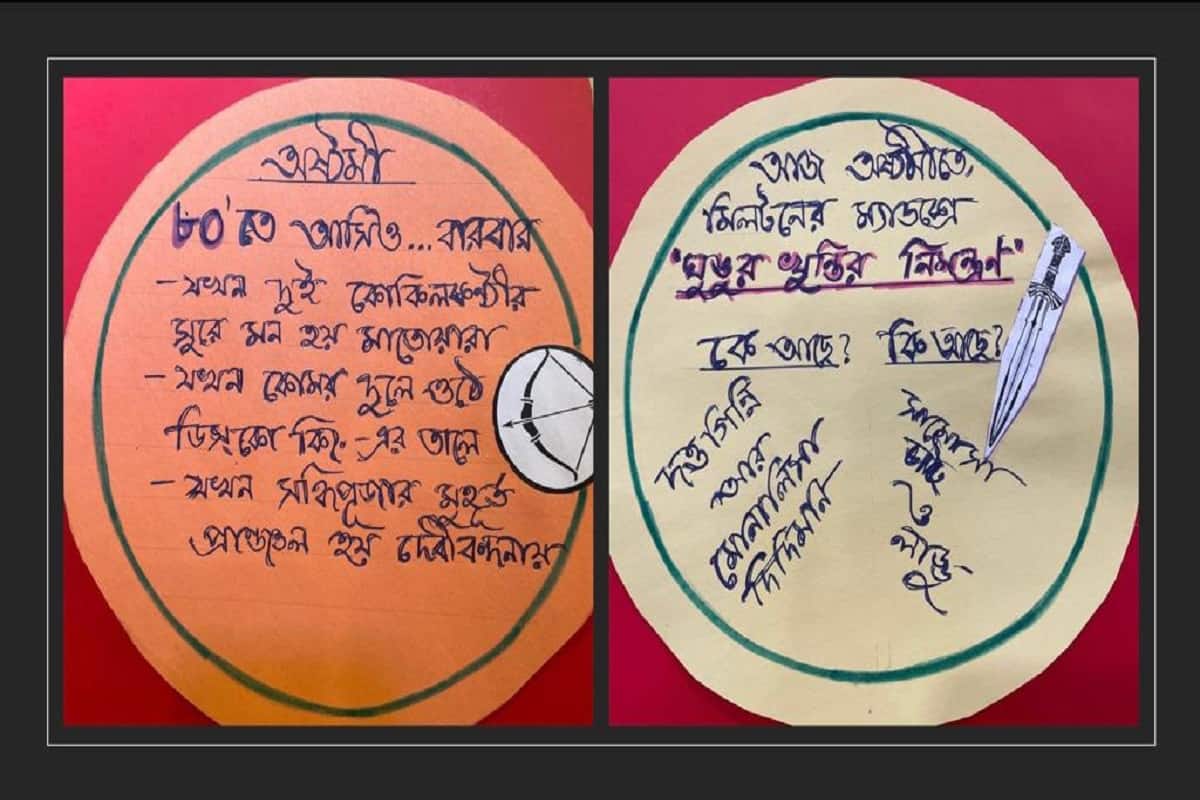 অষ্টমী
৮০'তে আসিও... বারবার
- যখন দুই কোকিলকণ্ঠীর
সুরে মন হয় মাতোয়ারা
- যখন কোমর দুলে ওঠে
ডিস্কো কিং-এর তালে
- যখন সন্ধিপূজার মুহূর্ত
প্রাণোচ্ছল হয় দেবীবন্দনায়
আজ অষ্টমীতে,
মিলটনের ম্যাডক্সে
"ঘুঙুর খুন্তির নিমন্ত্রণ"
কে আছে? কি আছে?
দত্তগিন্নি
আর
মোনালিসা
দিদিমনি
চাট
ও
লাড্ডু